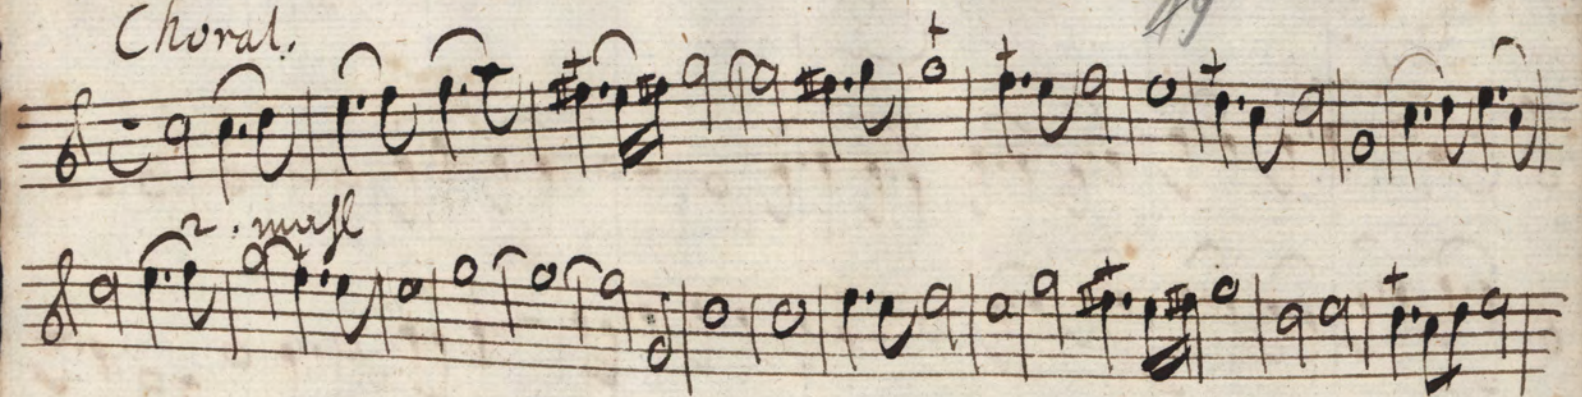 Choral.
49
2. mahl